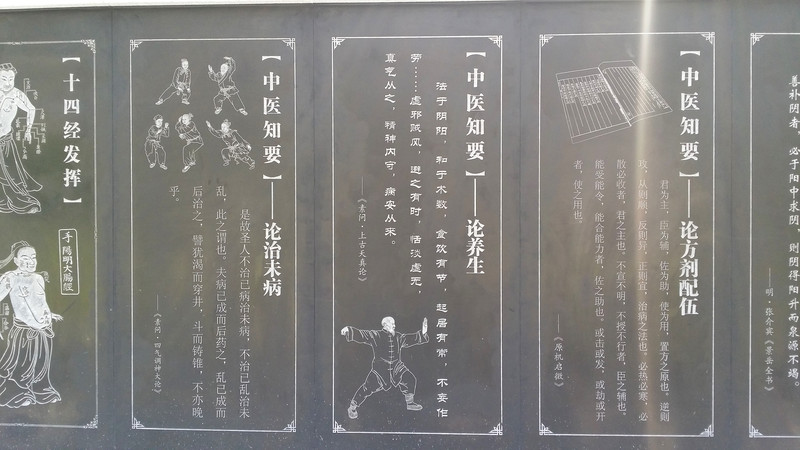 善补阴者，必于阳中求阴，则阴得阳升而泉源不竭。
——明·张介宾《景岳全书》
【中医知要】——论方剂配伍
君为主，臣为辅，佐为助，使为用，置方之原也。逆则
攻，从则顺，反则异，正则宜，治病之法也。必热必寒，必
散必收者，君之主也。不宣不明，不授不行者，臣之辅也。
能受能令，能合能力者，佐之助也。或击或发，或劫或开
者，使之用也。
——《原机启微》
【中医知要】——论养生
法于阴阳，和于术数，食饮有节，起居有常，不妄作
劳……虚邪贼风，避之有时，恬淡虚无，
真气从之，精神内守，病安从来。
——《素问·上古天真论》
【中医知要】——论治未病
是故圣人不治已病治未病，不治已乱治未
乱，此之谓也。夫病已成而后药之，乱已成而
后治之，譬犹渴而穿井，斗而铸锥，不亦晚
乎。
——《素问·四气调神大论》
【十四经发挥】
手阳明大肠经